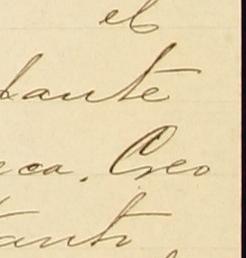 el
dante
eca. Creo
tanto